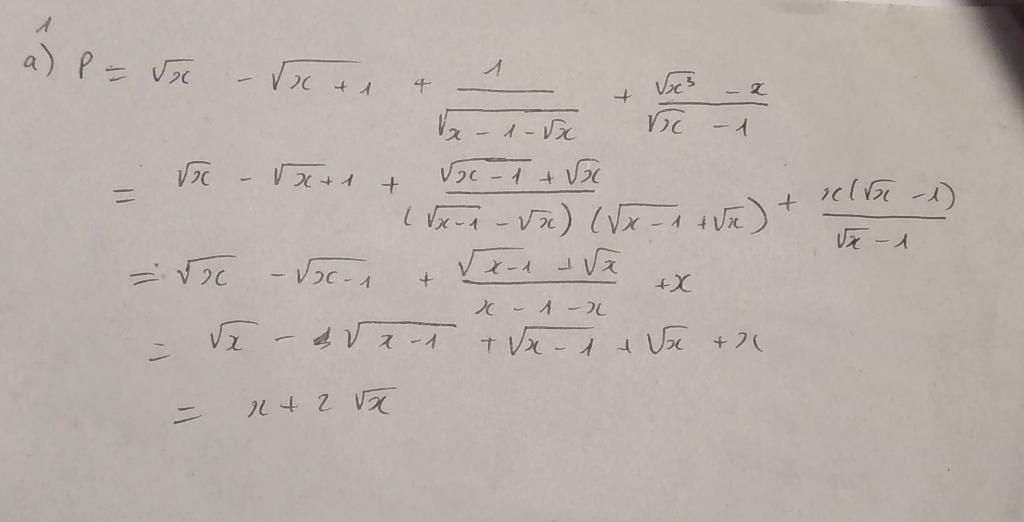 1
a) P = √x - √(x+1) + 1/(√(x-1-√x)) + (√x³ - x)/(√x - 1)
= √x - √x+1 + (√(x-1) + √x)/((√(x-1) - √x)(√(x-1) + √x)) + x(√x - 1)/(√x - 1)
= √x - √(x-1) + (√(x-1) + √x)/(x-1-x) + x
= √x - √(x-1) + √(x-1) + √x + x
= x + 2√x